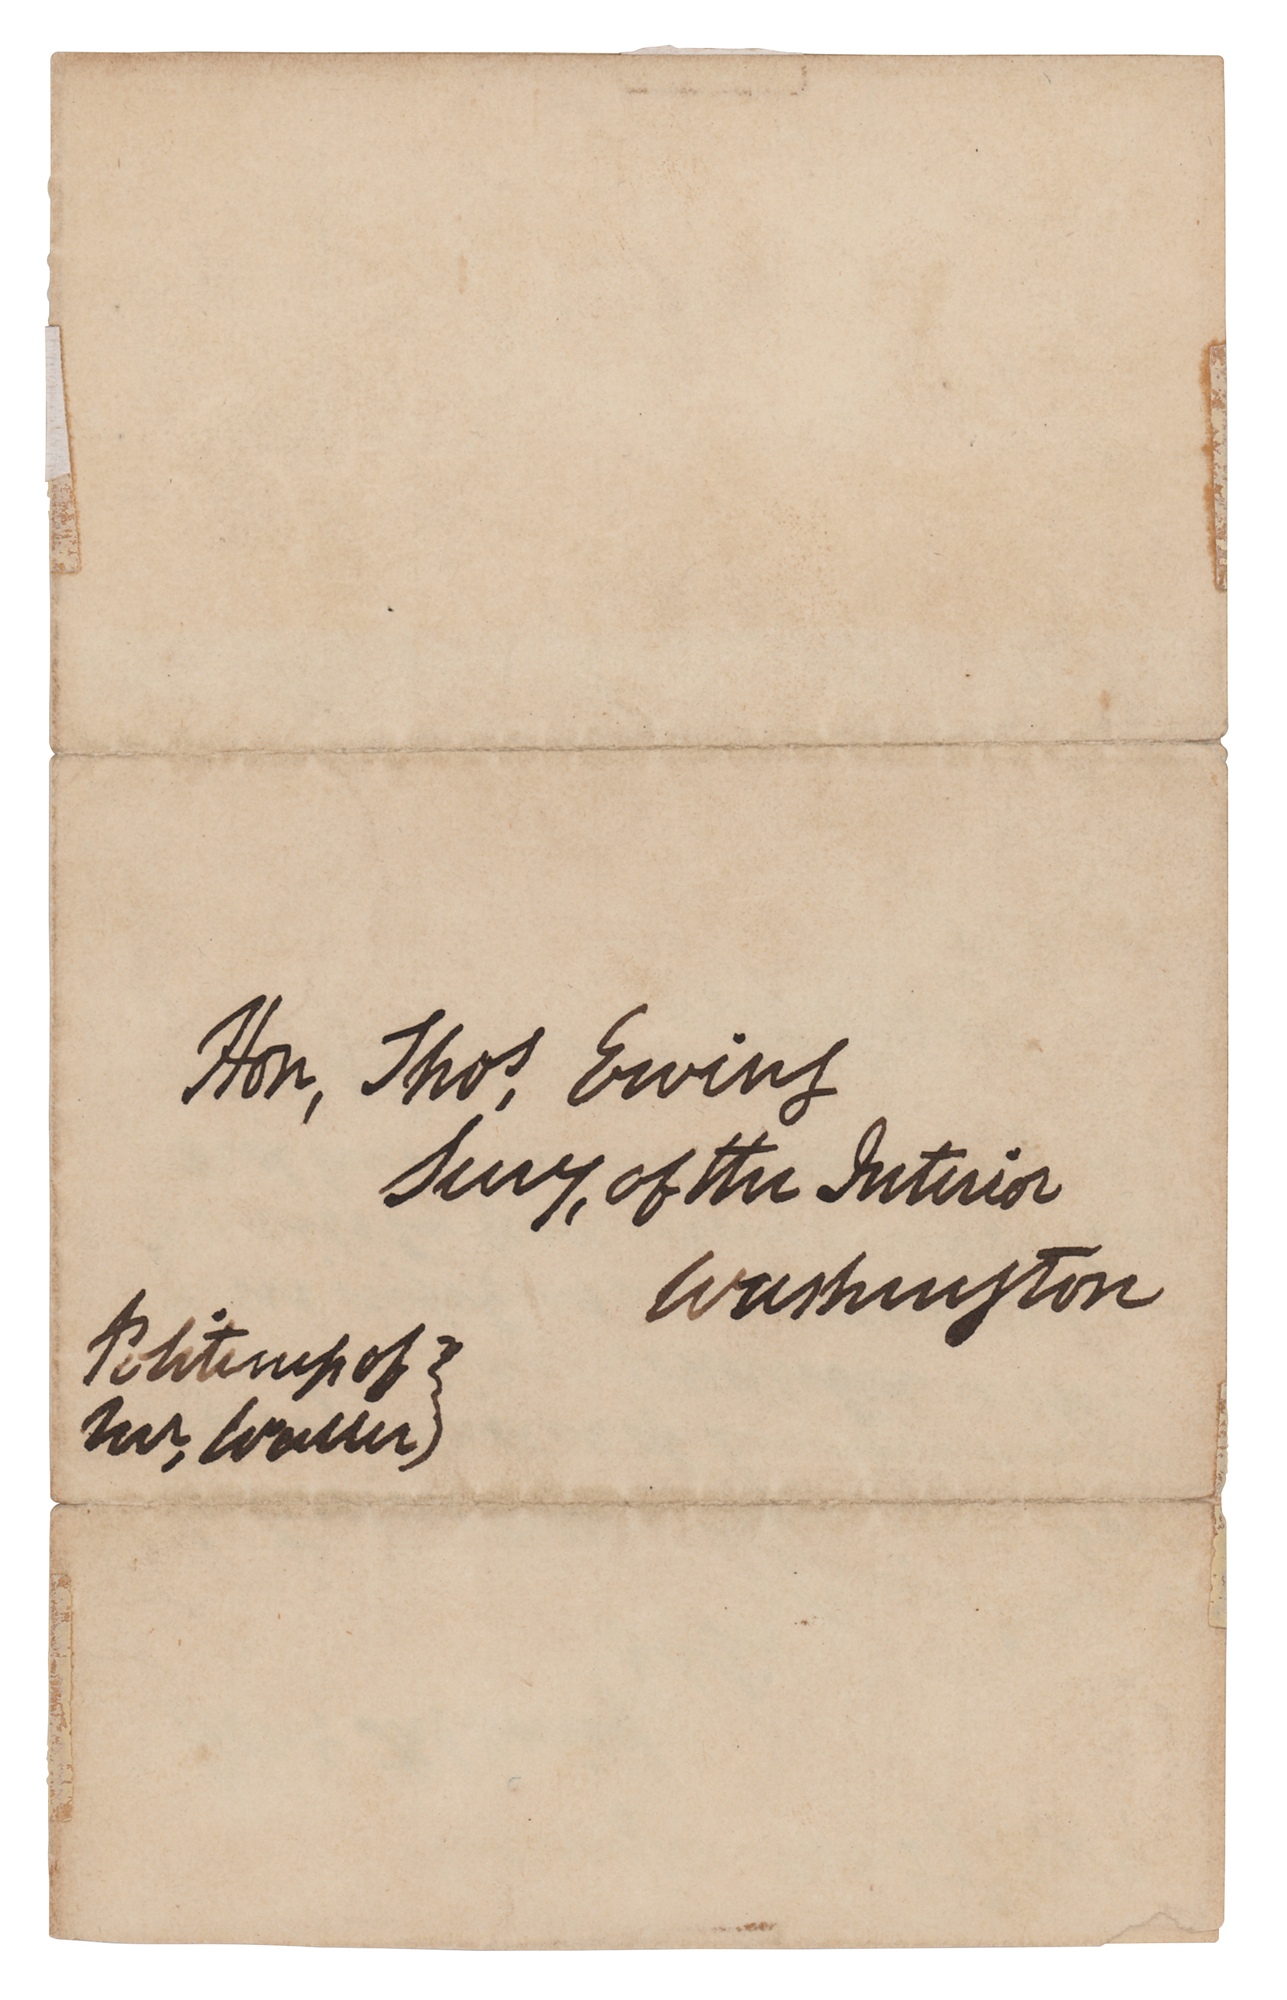 Hon, Thos, Ewing
Secy, of the Interior
Washington
Politeness of }
Mr, Waller